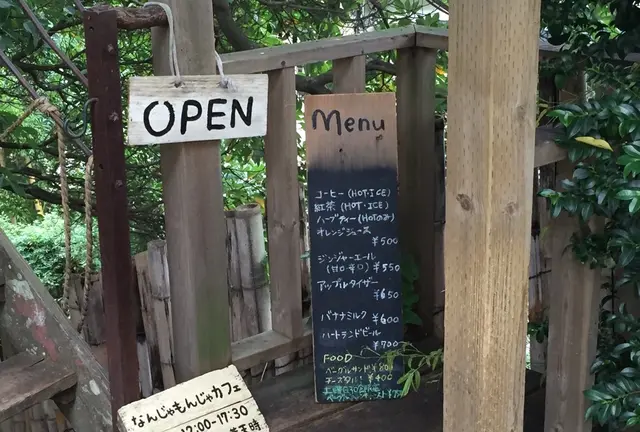 OPEN
Menu
コーヒー (HOT・ICE)
紅茶 (HOT・ICE)
ハーブティー (HOTのみ)
オレンジジュース
¥500
ジンジャーエール
(甘口・辛口) ¥550
アップルタイザー
¥650
バナナミルク ¥600
ハートランドビール
¥700
FOOD
ベーグルサンド ¥800
チーズタルト ¥400
なんじゃもんじゃカフェ
12:00-17:30